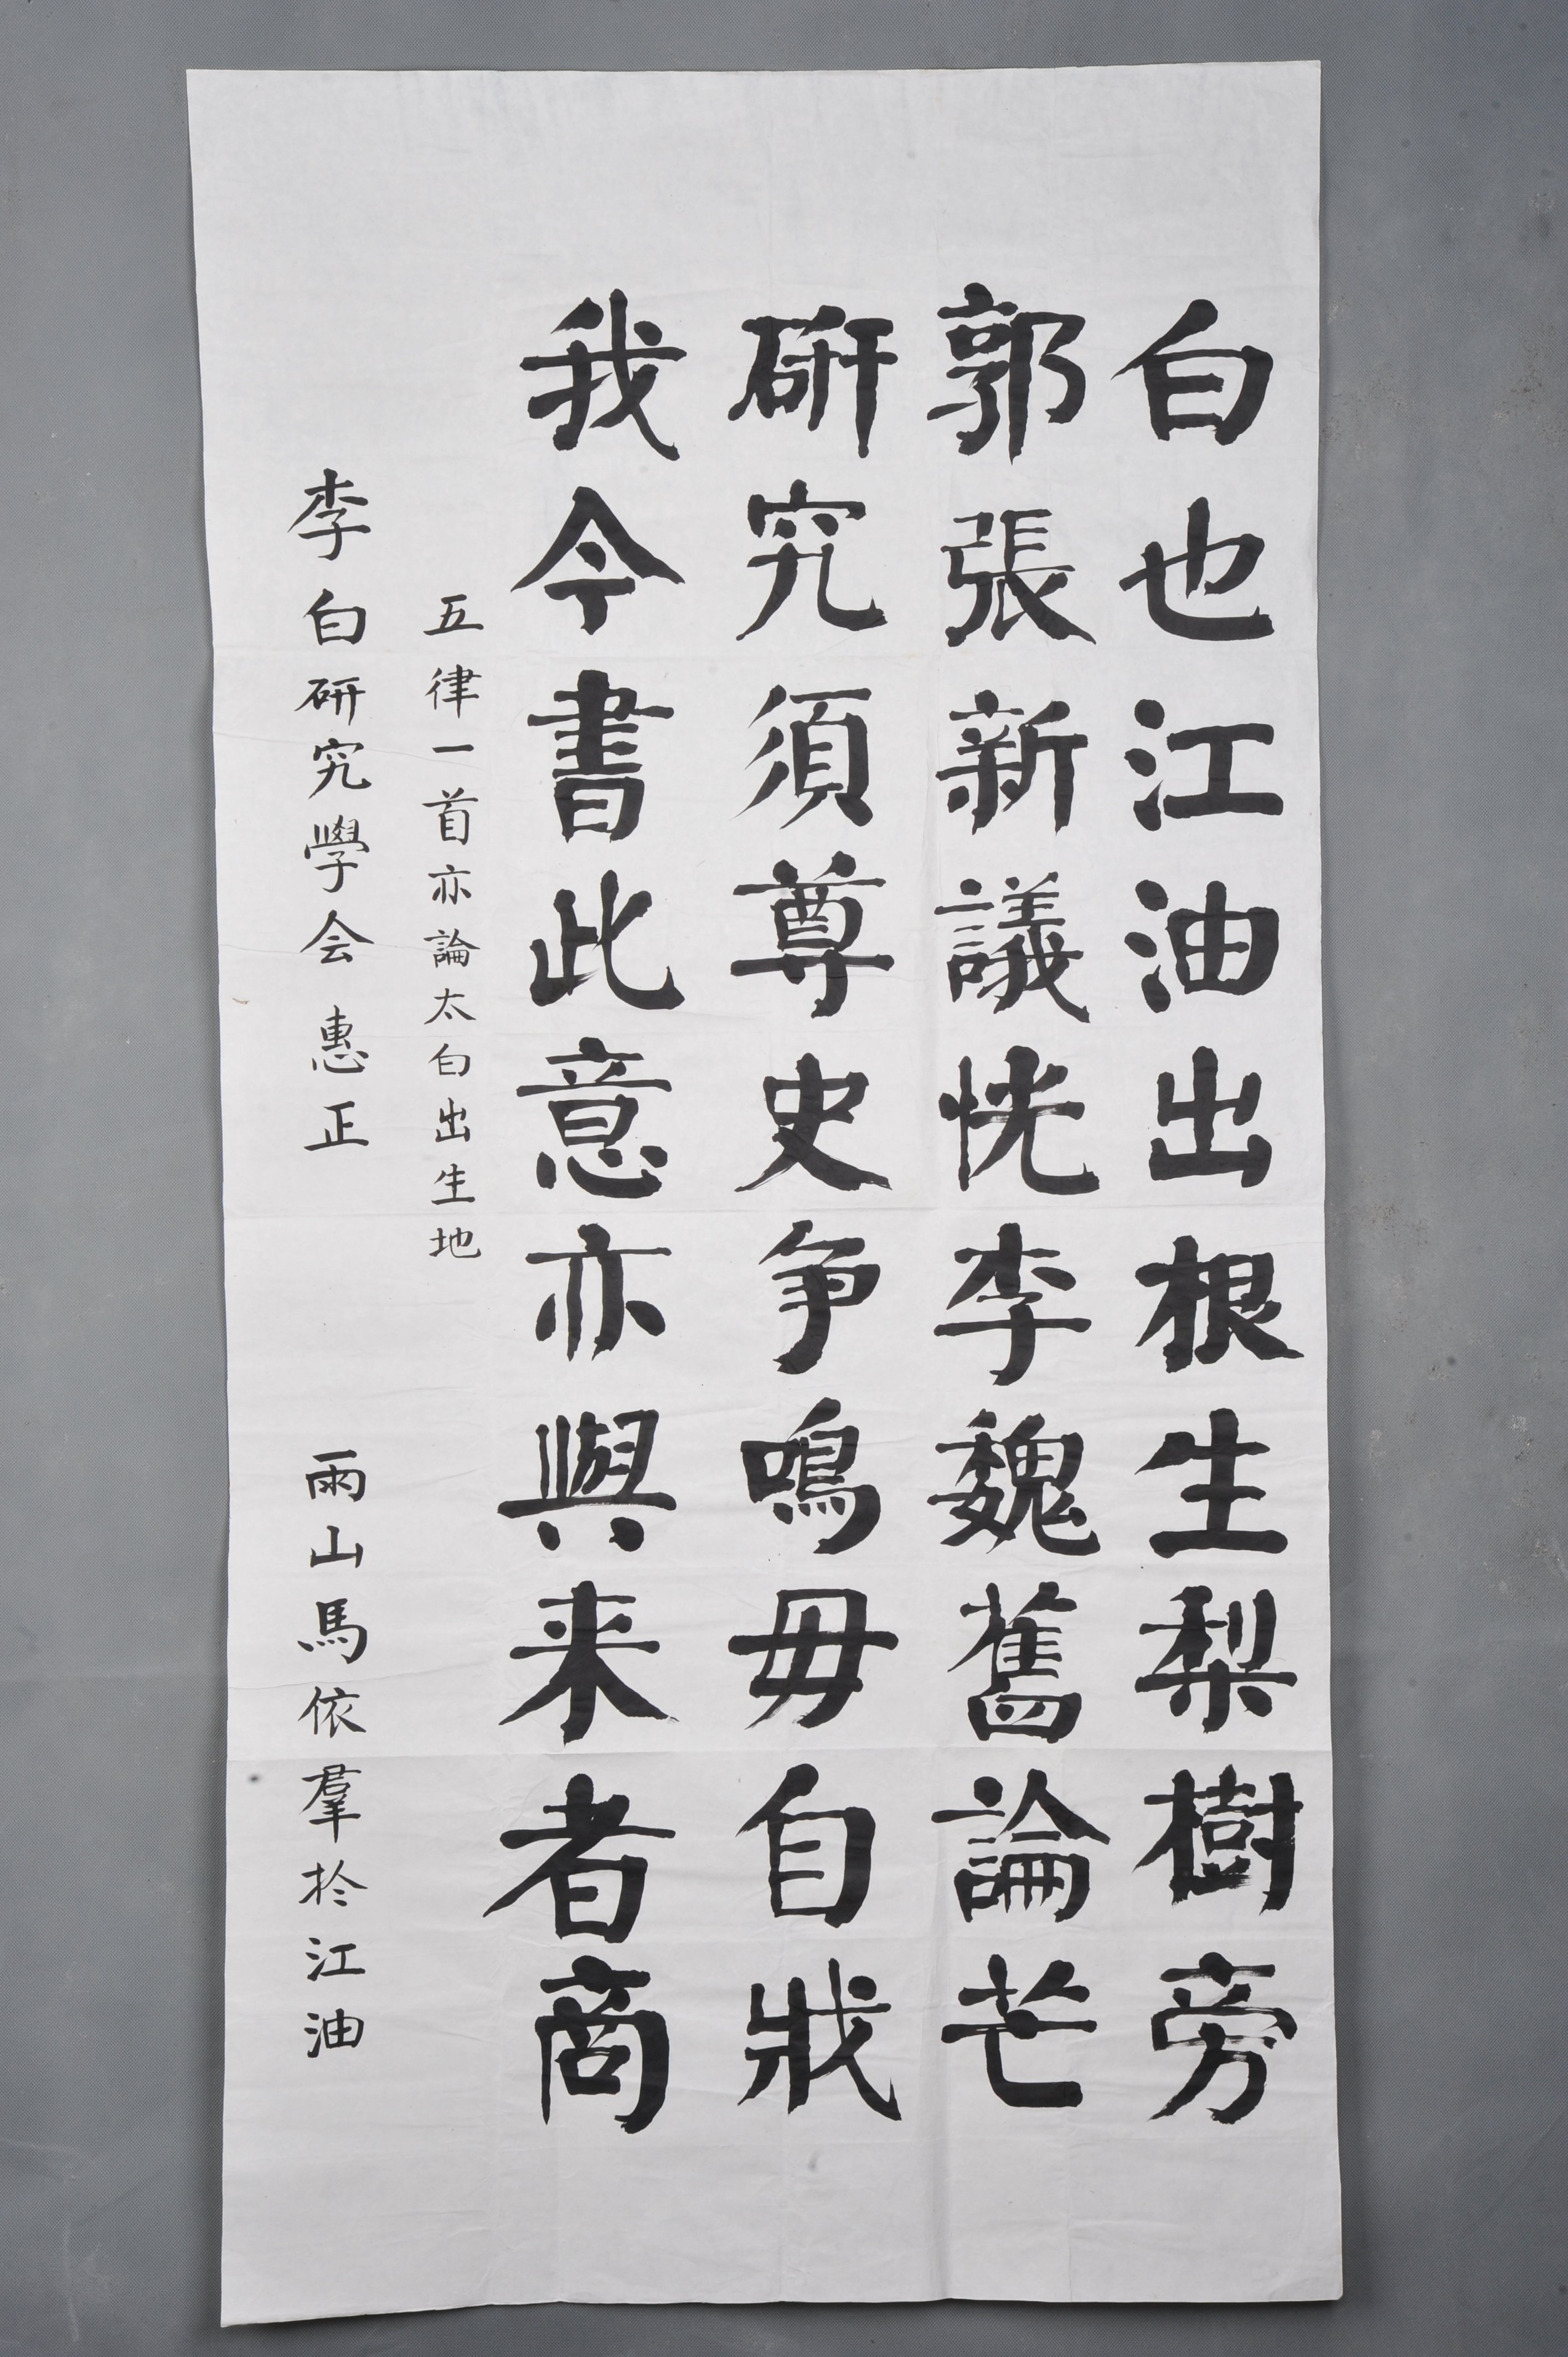 白也江油出根生梨樹旁
郭張新議恍李魏舊論芒
研究須尊史争鳴毋自戕
我今書此意亦與来者商
五律一首亦論太白出生地
李白研究學会 惠正
雨山馬依羣於江油